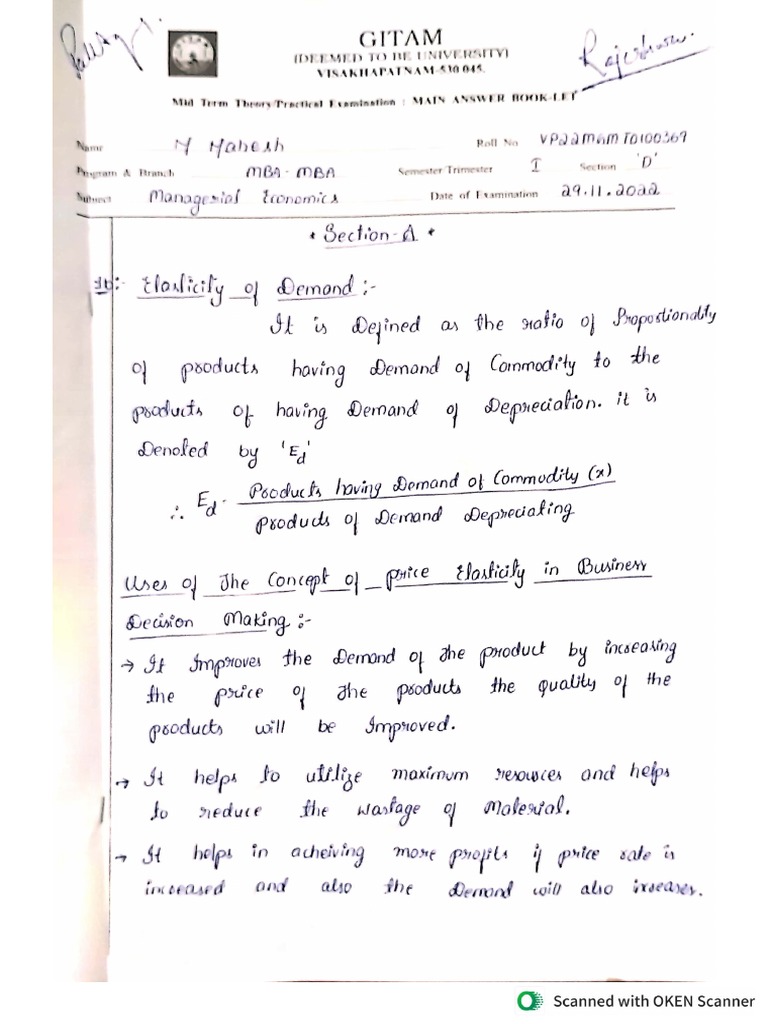 GITAM
(DEEMED TO BE UNIVERSITY)
VISAKHAPATNAM-530 045.
Mid Term Theory/Practical Examination : MAIN ANSWER BOOK-LET
Name M Mahesh Roll No VP22MGMT0100369
Program & Branch MBA - MBA Semester Trimester I Section 'D'
Subject Managerial Economics Date of Examination 29.11.2022
* Section-A *
1b:- Elasticity of Demand :-
It is Defined as the ratio of Propostionality
of products having Demand of Commodity to the
products of having Demand of Depreciation. it is
Denoted by 'Ed'
∴ Ed = Products having Demand of Commodity (x)
Products of Demand Depreciating
Uses of The Concept of price Elasticity in Business
Decision Making :-
→ It Improves the Demand of The product by increasing
the price of The products the quality of the
products will be Improved.
→ It helps to utilize maximum resources and helps
to reduce the wastage of Material.
→ It helps in acheiving more profits if price rate is
increased and also the Demand will also increases.
Scanned with OKEN Scanner